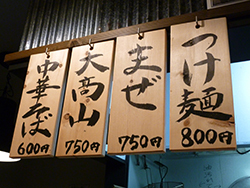 つけ麺
800円
まぜ
750円
大高山
750円
中華そば
600円